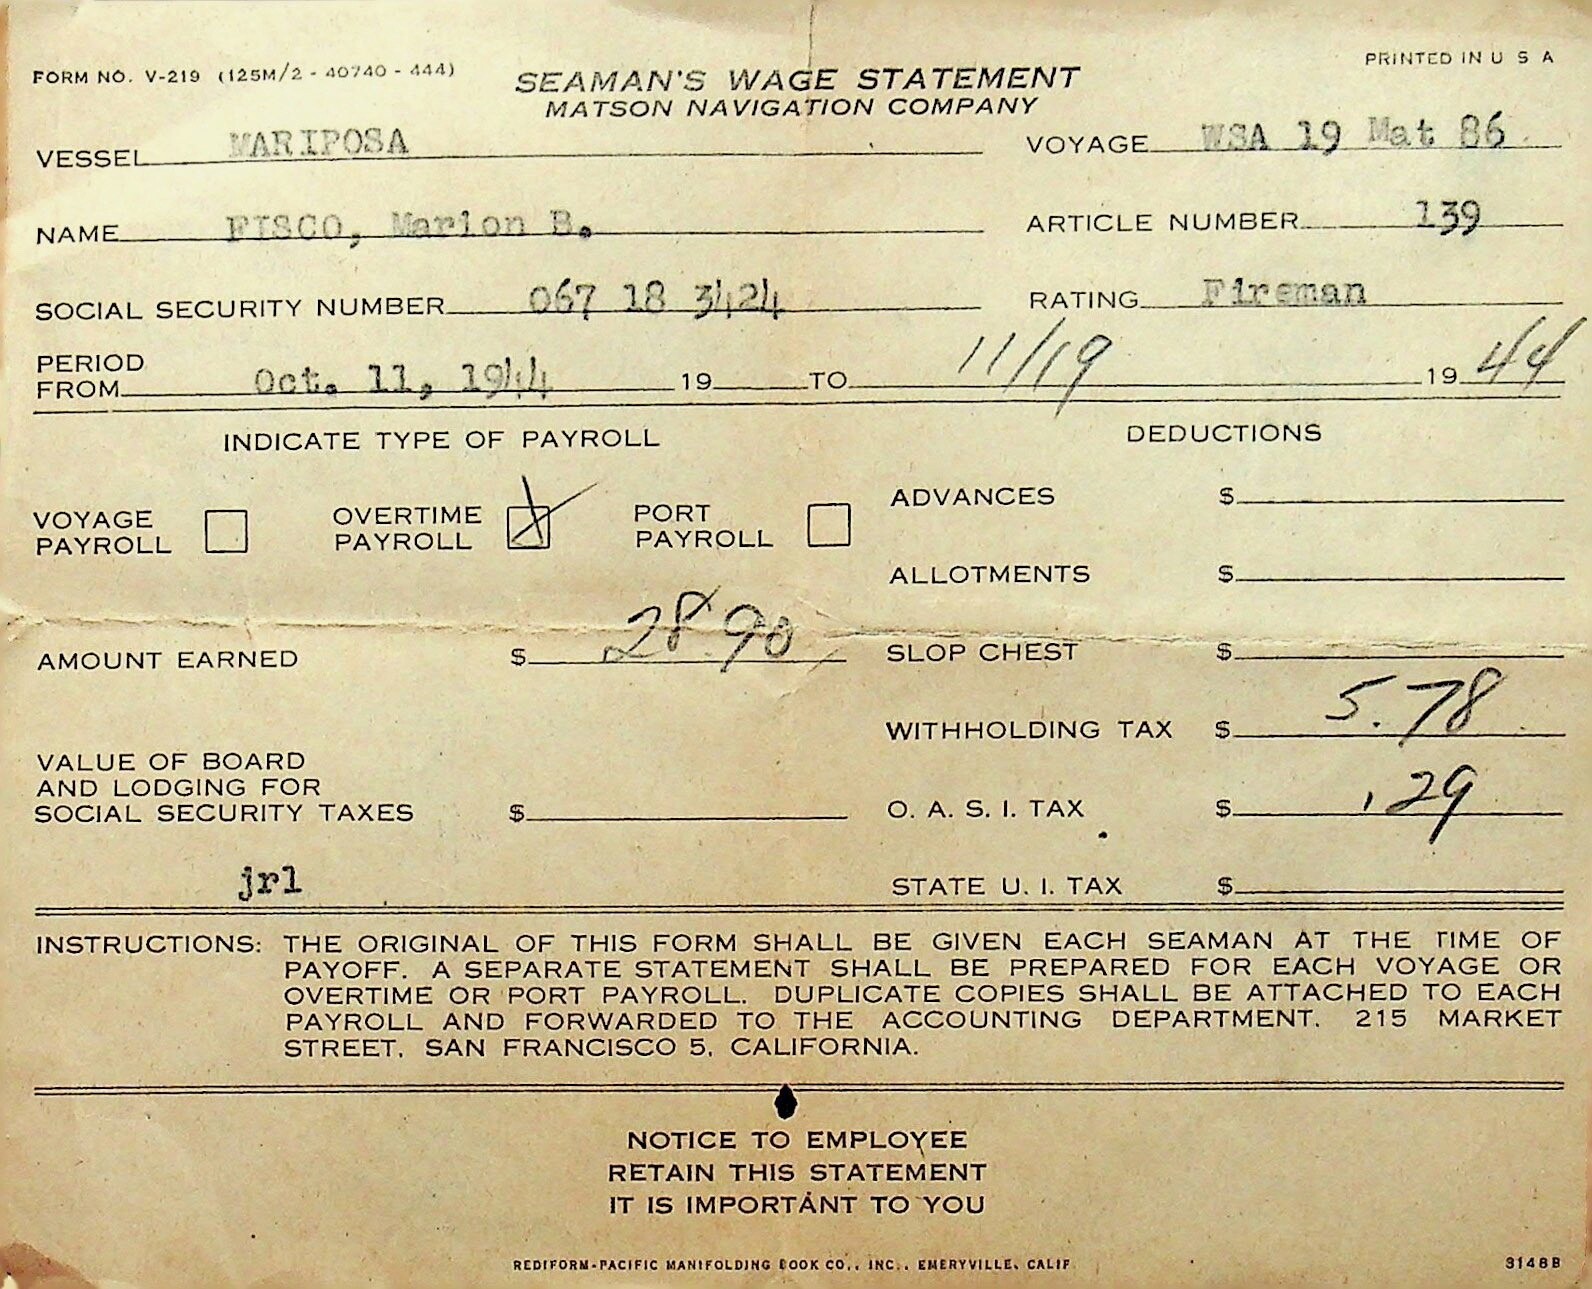 FORM NO. V-219 (125M/2 - 40740 - 444)
PRINTED IN U S A
SEAMAN'S WAGE STATEMENT
MATSON NAVIGATION COMPANY
VESSEL MARIPOSA
VOYAGE WSA 19 Mat 86
NAME FISCO, Marion B.
ARTICLE NUMBER 139
SOCIAL SECURITY NUMBER 067 18 3424
RATING Fireman
PERIOD
FROM Oct. 11, 1944 19 TO 11/19 19 44
INDICATE TYPE OF PAYROLL
DEDUCTIONS
VOYAGE
PAYROLL
OVERTIME
PAYROLL
PORT
PAYROLL
ADVANCES $
ALLOTMENTS $
AMOUNT EARNED $ 28.90
SLOP CHEST $
WITHHOLDING TAX $ 5.78
VALUE OF BOARD
AND LODGING FOR
SOCIAL SECURITY TAXES $
O. A. S. I. TAX $ .29
jrl
STATE U. I. TAX $
INSTRUCTIONS: THE ORIGINAL OF THIS FORM SHALL BE GIVEN EACH SEAMAN AT THE TIME OF
PAYOFF. A SEPARATE STATEMENT SHALL BE PREPARED FOR EACH VOYAGE OR
OVERTIME OR PORT PAYROLL. DUPLICATE COPIES SHALL BE ATTACHED TO EACH
PAYROLL AND FORWARDED TO THE ACCOUNTING DEPARTMENT. 215 MARKET
STREET. SAN FRANCISCO 5. CALIFORNIA.
NOTICE TO EMPLOYEE
RETAIN THIS STATEMENT
IT IS IMPORTANT TO YOU
REDIFORM-PACIFIC MANIFOLDING BOOK CO., INC., EMERYVILLE, CALIF
3148B